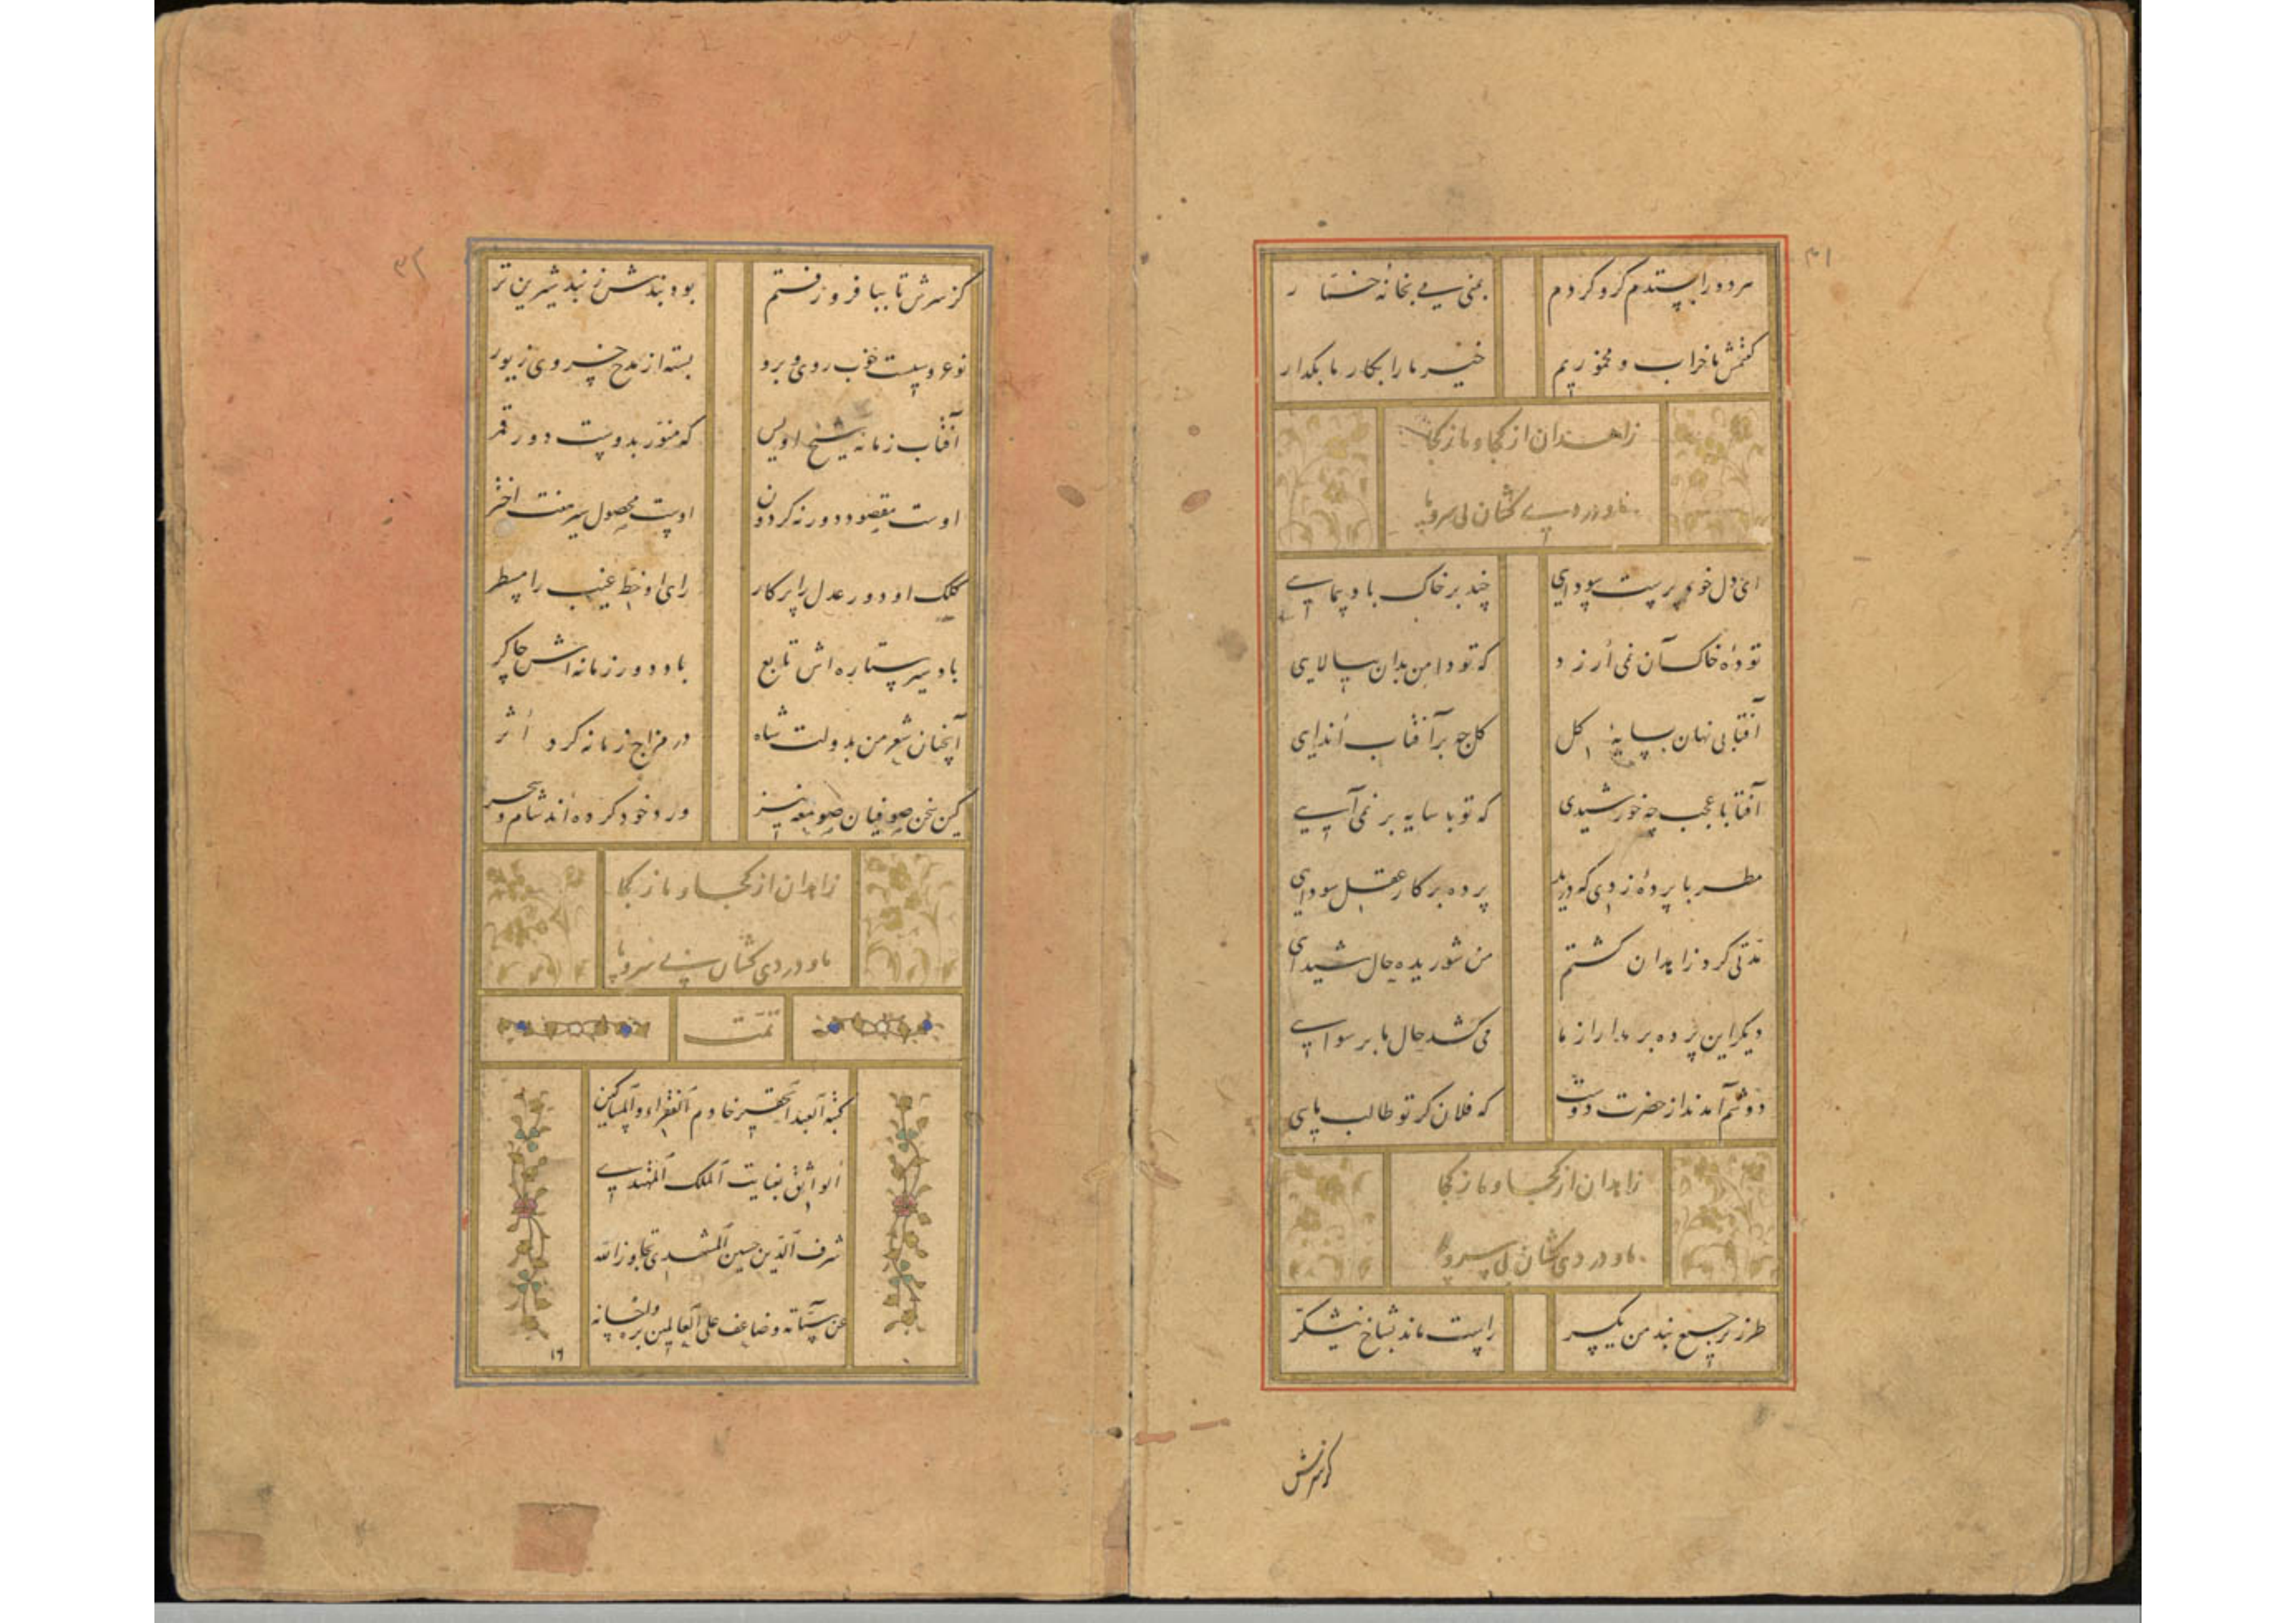 ۳۱
هر دو را بستدم گرو کردم بمی یی بخانهٔ خمّار
گفتمش ما خراب و مخموریم خیز ما را بکار ما بگذار
زاهدان از کجا و ما ز کجا
ما و دردی کشان بی سر و پا
ای دل خود پرست سودایی چند بر خاک باد پیمایی
تودهٔ خاک آن نمی ارزد که تو دامن بدان بیالایی
آفتابی نهان بسایهٔ گل گل چه بر آفتاب اندایی
آفتابا عجب چه خورشیدی که تو با سایه بر نمی آیی
مطربا پردهٔ زدی که درید پرده بر کار عقل سودایی
مدتی گرد زاهدان گشتم من شوریده حال شیدایی
دیگر این پرده بر مدار از ما می کشد حال ما برسوایی
دوشم آمد ندا ز حضرت دوست که فلان گر تو طالب مایی
زاهدان از کجا و ما ز کجا
ما و دردی کشان بی سر و پا
طرز ترجیع بند من یکسر راست ماند بشاخ نیشکر
کز سرش
۳۲
کز سرش تا بپا فرو رفتم بود بندش ز بند شیرین تر
نوعروسیست خوب روی و برو بسته از مدح خسروی زیور
آفتاب زمانه شیخ اویس که منور بدوست دور قمر
اوست مقصود دور نه گردون اوست محصول سیر هفت اختر
کلک او دور عدل را پرکار رای او خط غیب را مسطر
باد سیر ستاره اش تابع باد دور زمانه اش چاکر
آنچنان شعر من بدولت شاه در مزاج زمانه کرد اثر
کین سخن صوفیان صومعه نیز ورد خود کرده اند شام و سحر
زاهدان از کجا و ما ز کجا
ما و دردی کشان بی سر و پا
تمّت
کتبه العبد الحقیر خادم الفقراء و المساکین
الواثق بعنایت الملک
شرف الدین حسین المشهدی تجاوز الله
عن سیّئاته و ضاعف علی العالمین برّه و احسانه